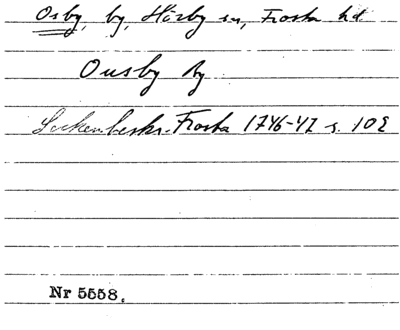 Osby, by, Hörby sn, Frosta hd
Ousby By
Sockenbeskr. Frosta 1746-47 s. 102
Nr 5558.